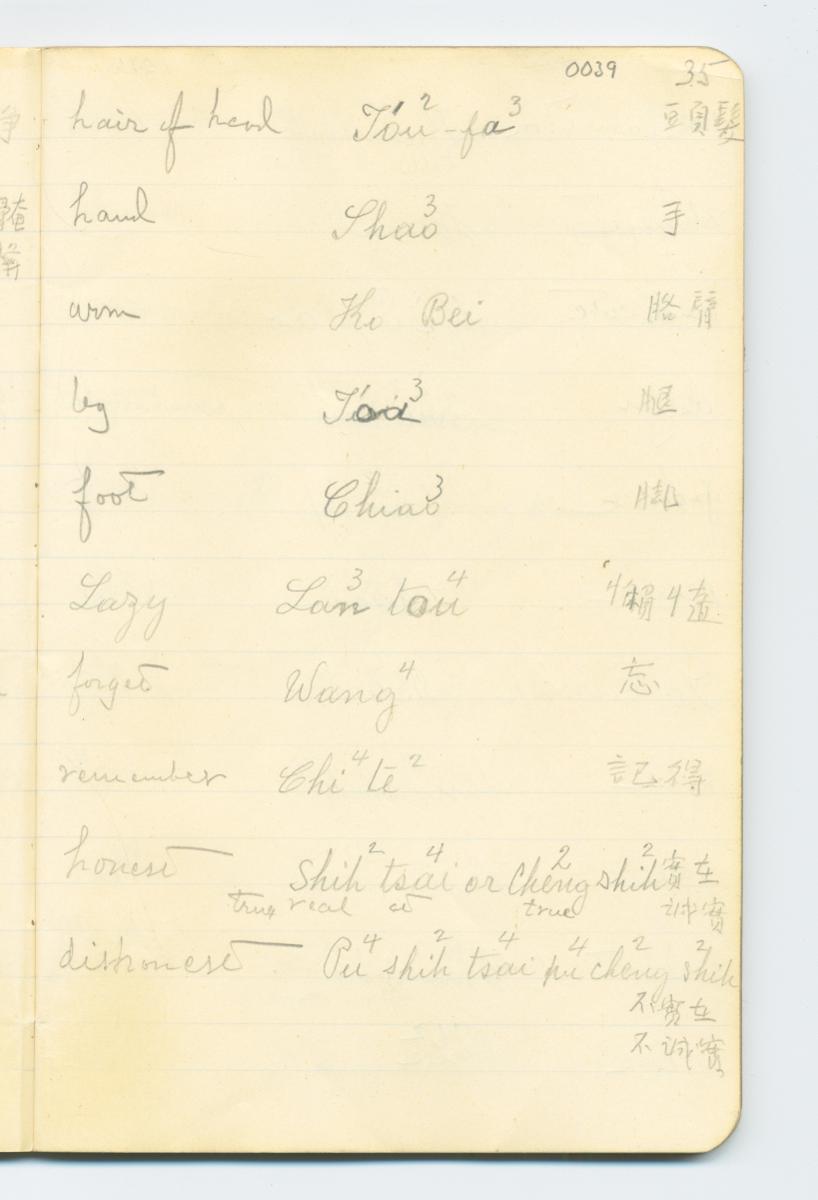 0039 35
hair of head T'ou²-fa³ 頭髮
hand Shao³ 手
arm Ko Bei 胳臂
leg 腿
foot Chiao³ 脚
Lazy Lan³ tou⁴ 懶
forget Wang⁴ 忘
remember Chi⁴ tē² 記得
honest Shih² tsai⁴ or Cheng² shih² 實在
true real at true 誠實
dishonest Pu⁴ shih² tsai⁴ pu⁴ cheng² shih²
不實在
不誠實